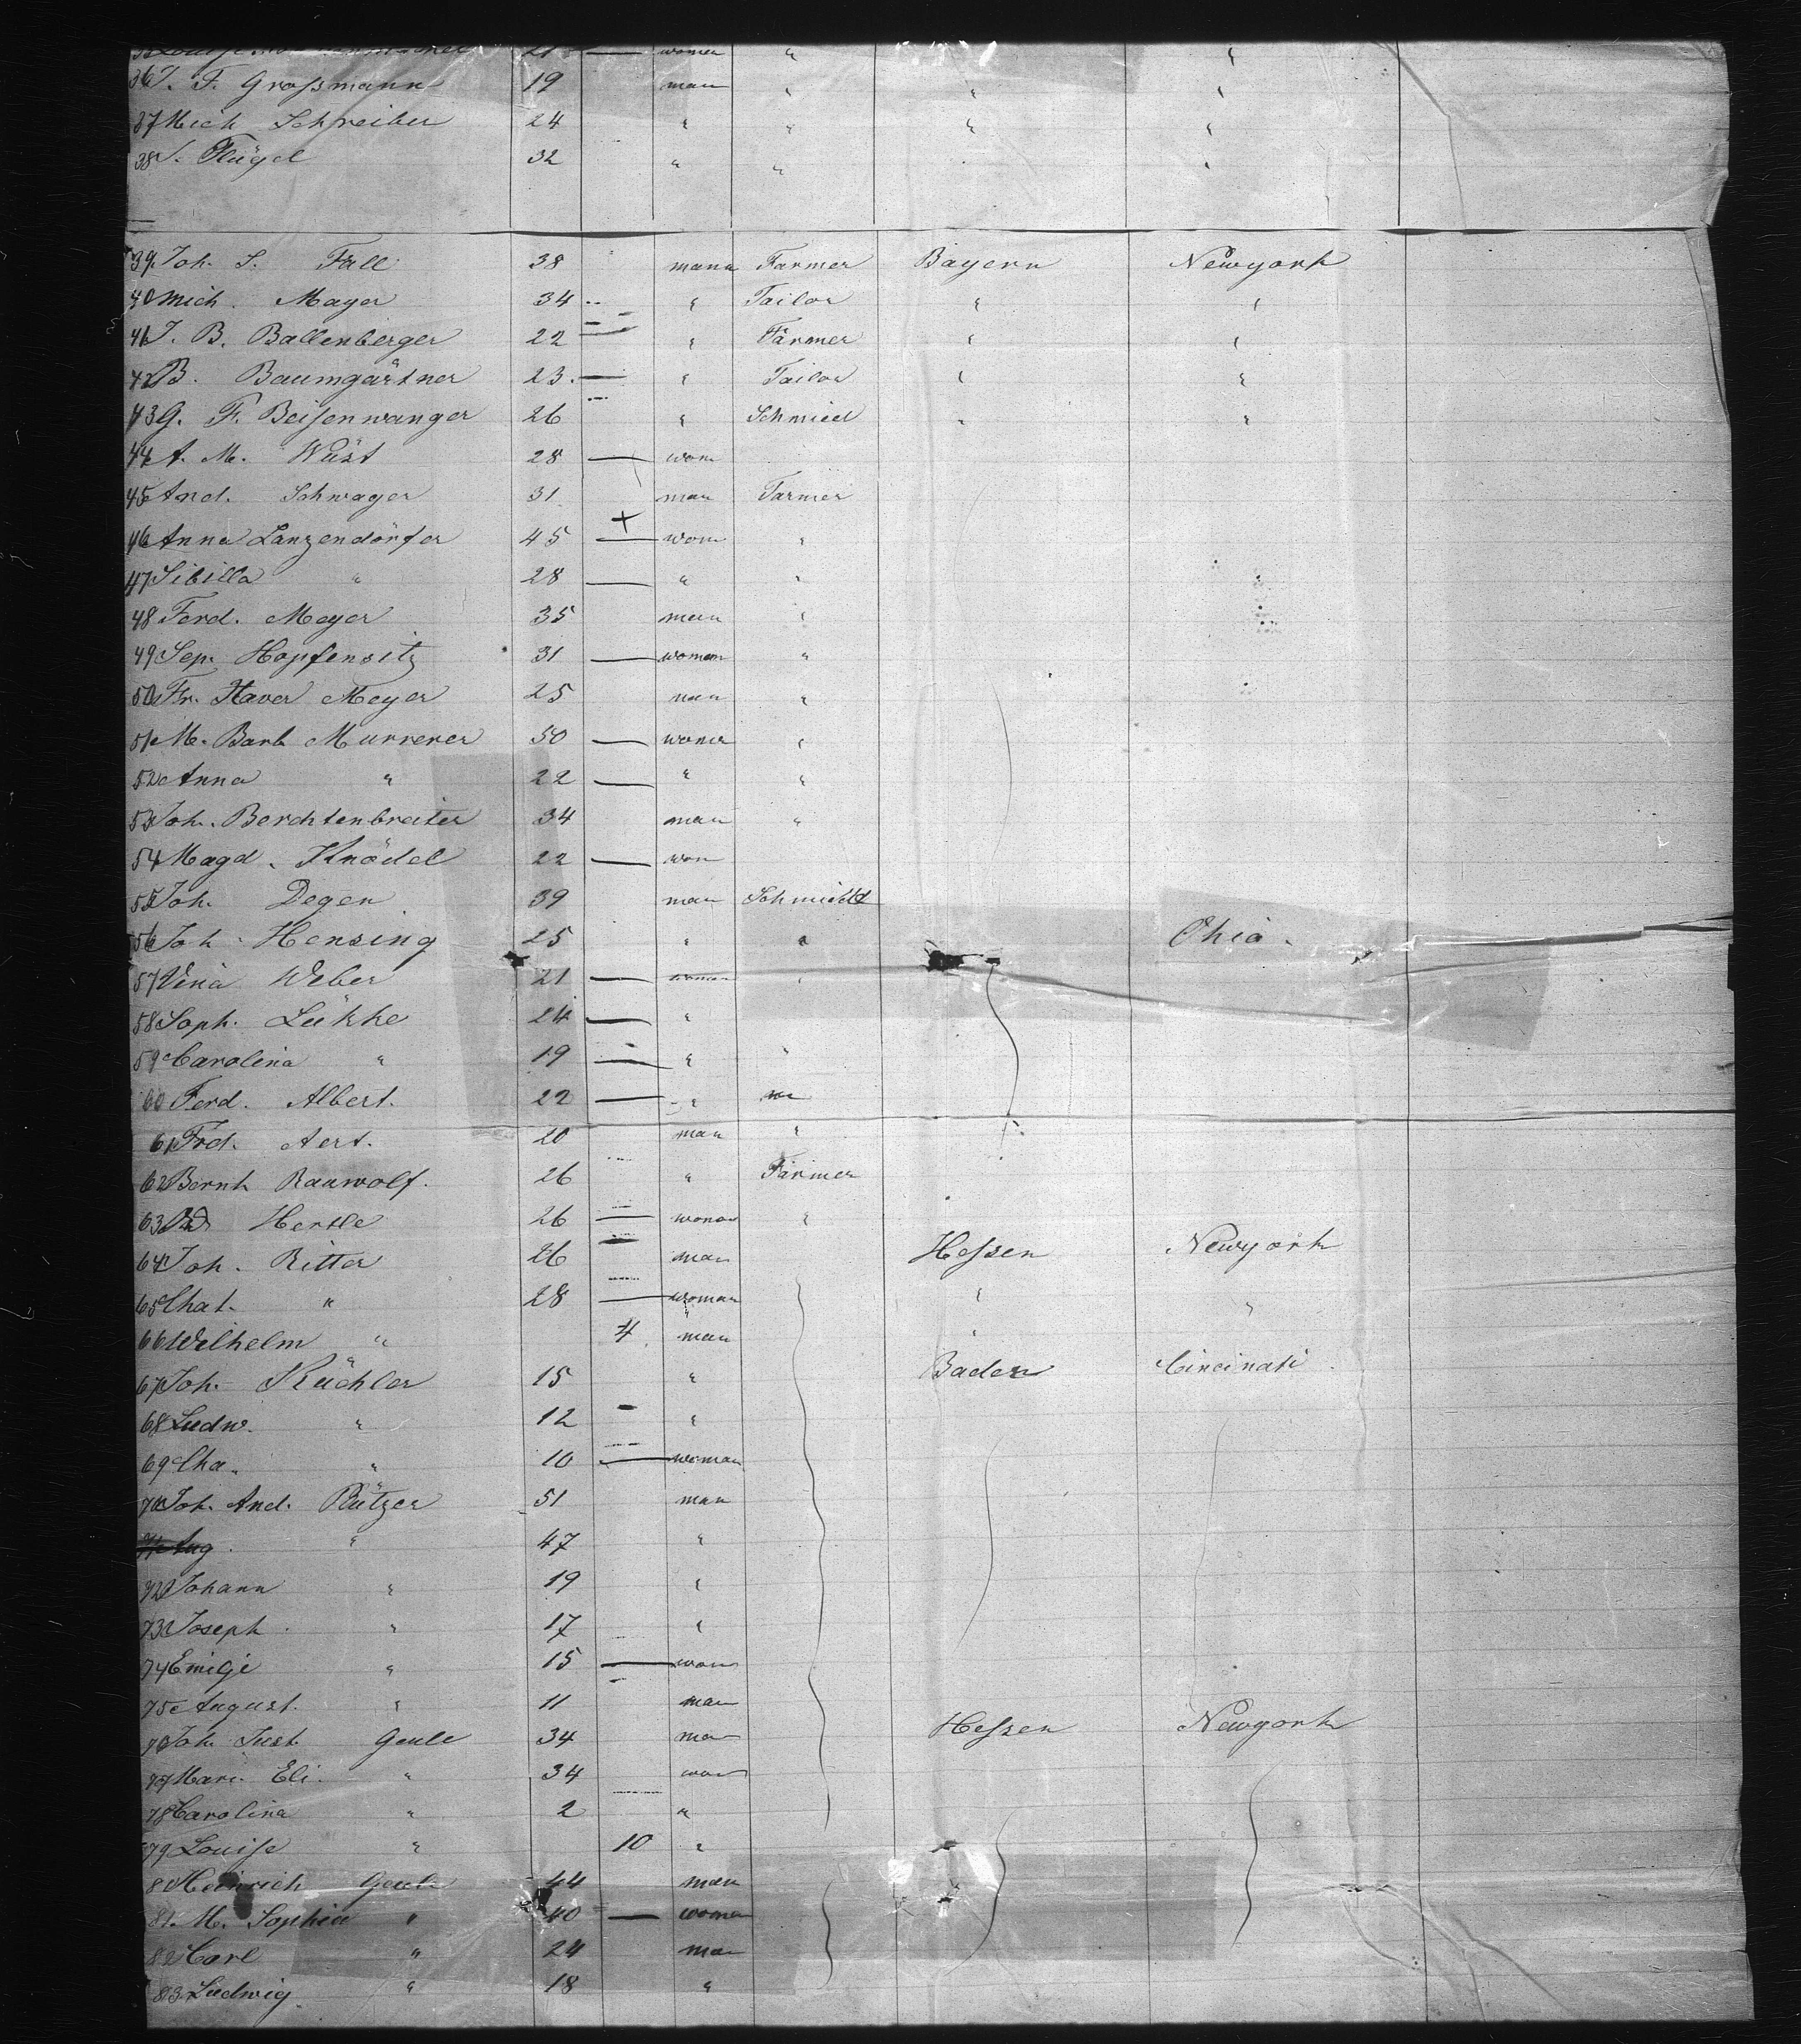 21 women "
36 J. F. Grossmann 19 man " " "
37 Mich Schreiber 24 " " " "
38 J. Flügel 32 " " "
39 Joh. S. Fall 38 mann Farmer Bayern Newyork
40 Mich. Mayer 34 " Tailor " "
41 J. B. Ballenberger 22 " Farmer " "
42 B. Baumgärtner 23 " Tailor " "
43 G. F. Beisenwanger 26 " Schmied " "
44 A. M. Wüst 28 — wom
45 And. Schwager 31 man Farmer
46 Anna Lanzendörfer 45 + wom "
47 Sibilla " 28 — " "
48 Ferd. Meyer 35 man "
49 Sep. Hopfensitz 31 — women "
50 Fr. Xaver Meyer 25 man "
51 M. Barb Murrerer 50 — women "
52 Anna " 22 — " "
53 Joh. Berchtenbreiter 34 man "
54 Magd. Knödel 22 — wom
55 Joh. Degen 39 man Schmidt
56 Joh. Hensing 25 " " Ohio.
57 Weber 21 — women "
58 Soph. Lükke 24 — "
59 Carolina " 19 — " "
60 Ferd. Albert. 22 — "
61 Frd. Aert. 20 man "
62 Bernh Rauwolf. 26 " Farmer
63 Hertle 26 — woman "
64 Joh. Ritter 26 man Hessen Newyork
65 Chat. " 28 — woman " "
66 Wilhelm " 4 man "
67 Joh. Küchler 15 " Baden Cincinati
68 Ludw. " 12 "
69 Cha. " 10 — woman
70 Joh. And. Rützer 51 man
71 Aug. " 47 "
72 Johann " 19 "
73 Joseph " 17 "
74 Emilje " 15 — wom
75 August. " 11 man
76 Joh. Just Geule 34 man Hessen Newyork
77 Mari. Eli. " 34 wom
78 Carolina " 2 "
79 Louise " 10 "
80 Heinrich Geule 44 man
81 M. Sophia " 40 — women
82 Carl " 24 man
83 Ludwig " 18 "